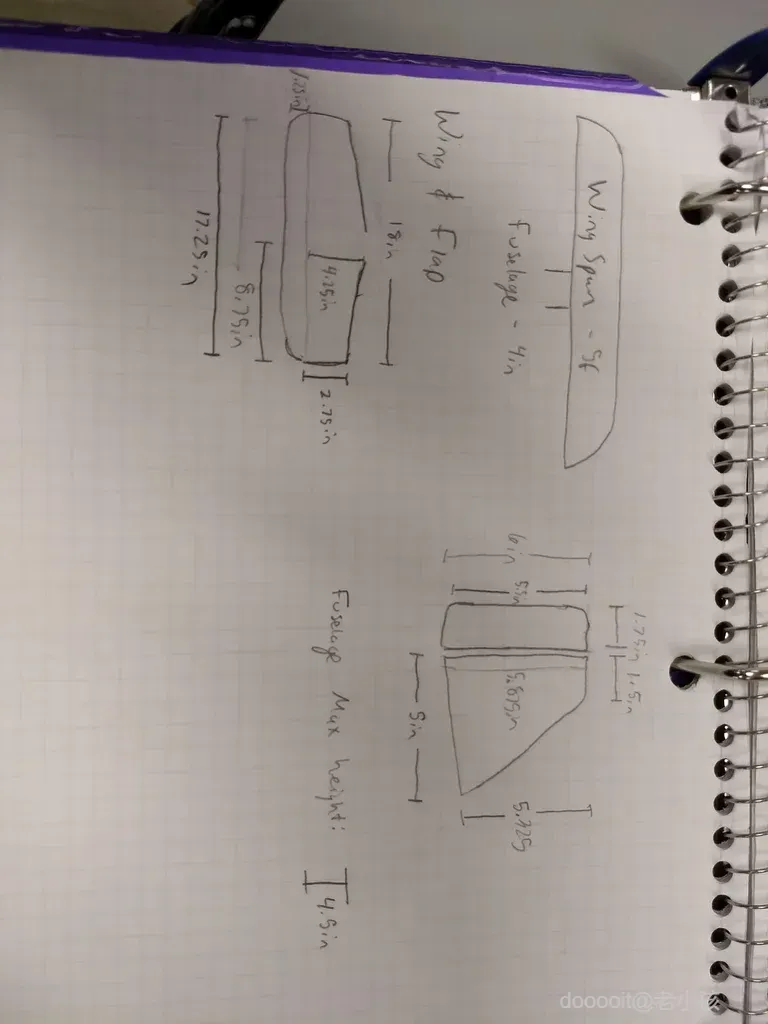 Wing Span - 56
Fuselage - 4in
Wing & Flap
18in
4.25in
2.75in
1.25in
8.75in
17.25in
1.75in 1.5in
6in
5.5in
5.875in
5.125
9in
Fuselage Max height:
4.5in
dooooit@老小孩